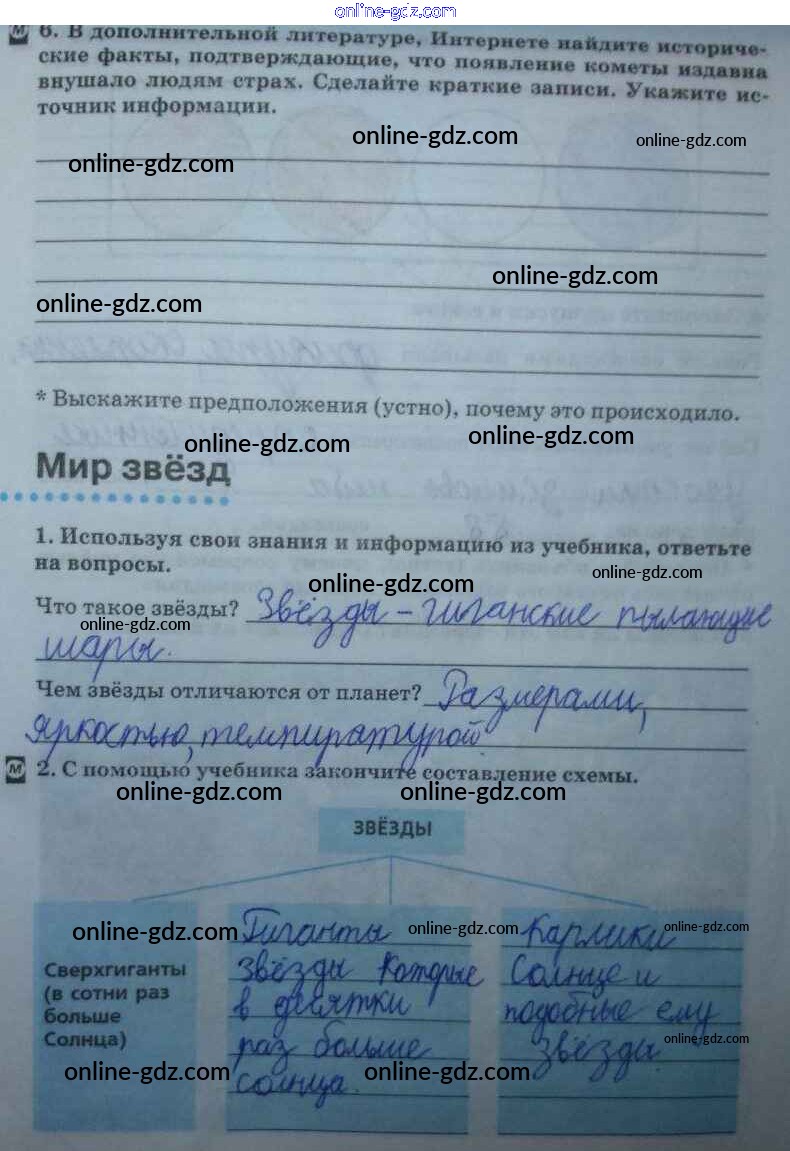 online-gdz.com
М 6. В дополнительной литературе, Интернете найдите историче-
ские факты, подтверждающие, что появление кометы издавна
внушало людям страх. Сделайте краткие записи. Укажите ис-
точник информации.
online-gdz.com
online-gdz.com
online-gdz.com
online-gdz.com
online-gdz.com
* Выскажите предположения (устно), почему это происходило.
online-gdz.com
online-gdz.com
Мир звёзд
1. Используя свои знания и информацию из учебника, ответьте
на вопросы.
online-gdz.com
online-gdz.com
Что такое звёзды? Звёзды – гиганские пылающие
online-gdz.com
шары.
Чем звёзды отличаются от планет? Размерами,
яркостью, температурой
М 2. С помощью учебника закончите составление схемы.
online-gdz.com
online-gdz.com
ЗВЁЗДЫ
online-gdz.com
online-gdz.com
online-gdz.com
Сверхгиганты
(в сотни раз
больше
Солнца)
Гиганты
Звёзды которые
в десятки
раз больше
солнца.
Карлики
Солнце и
подобные ему
звёзды.
online-gdz.com
online-gdz.com
online-gdz.com